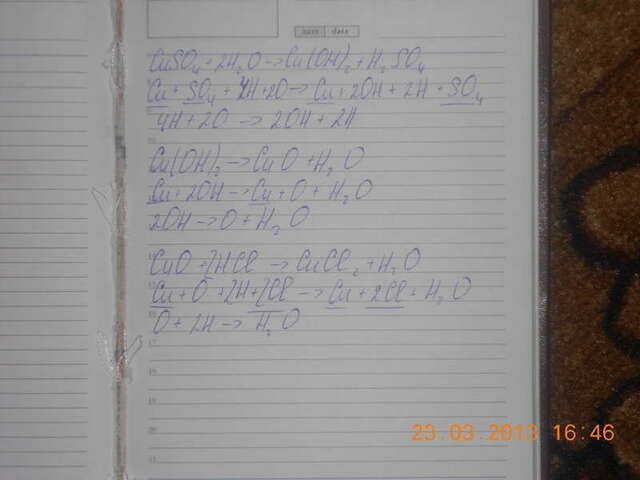 date
CuSO₄ + 2H₂O → Cu(OH)₂ + H₂SO₄
Cu + SO₄ + 4H + 2O → Cu + 2OH + 2H + SO₄
4H + 2O → 2OH + 2H
Cu(OH)₂ → CuO + H₂O
Cu + 2OH → Cu + O + H₂O
2OH → O + H₂O
CuO + 2HCl → CuCl₂ + H₂O
Cu + O + 2H + 2Cl → Cu + 2Cl + H₂O
O + 2H → H₂O
17
18
19
20
21
23.03.2013 16:46